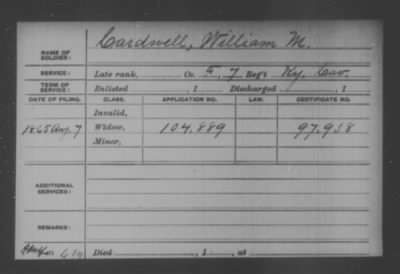 NAME OF SOLDIER: Cardwell, William M.
SERVICE: Late rank, Co. F, 7 Reg't Ky. Cav.
TERM OF SERVICE: Enlisted , 1 Discharged , 1
DATE OF FILING. CLASS. APPLICATION NO. LAW. CERTIFICATE NO.
Invalid,
1865 Aug. 7 Widow, 104.889 97.938
Minor,
ADDITIONAL SERVICES:
REMARKS:
Died , 1 , at